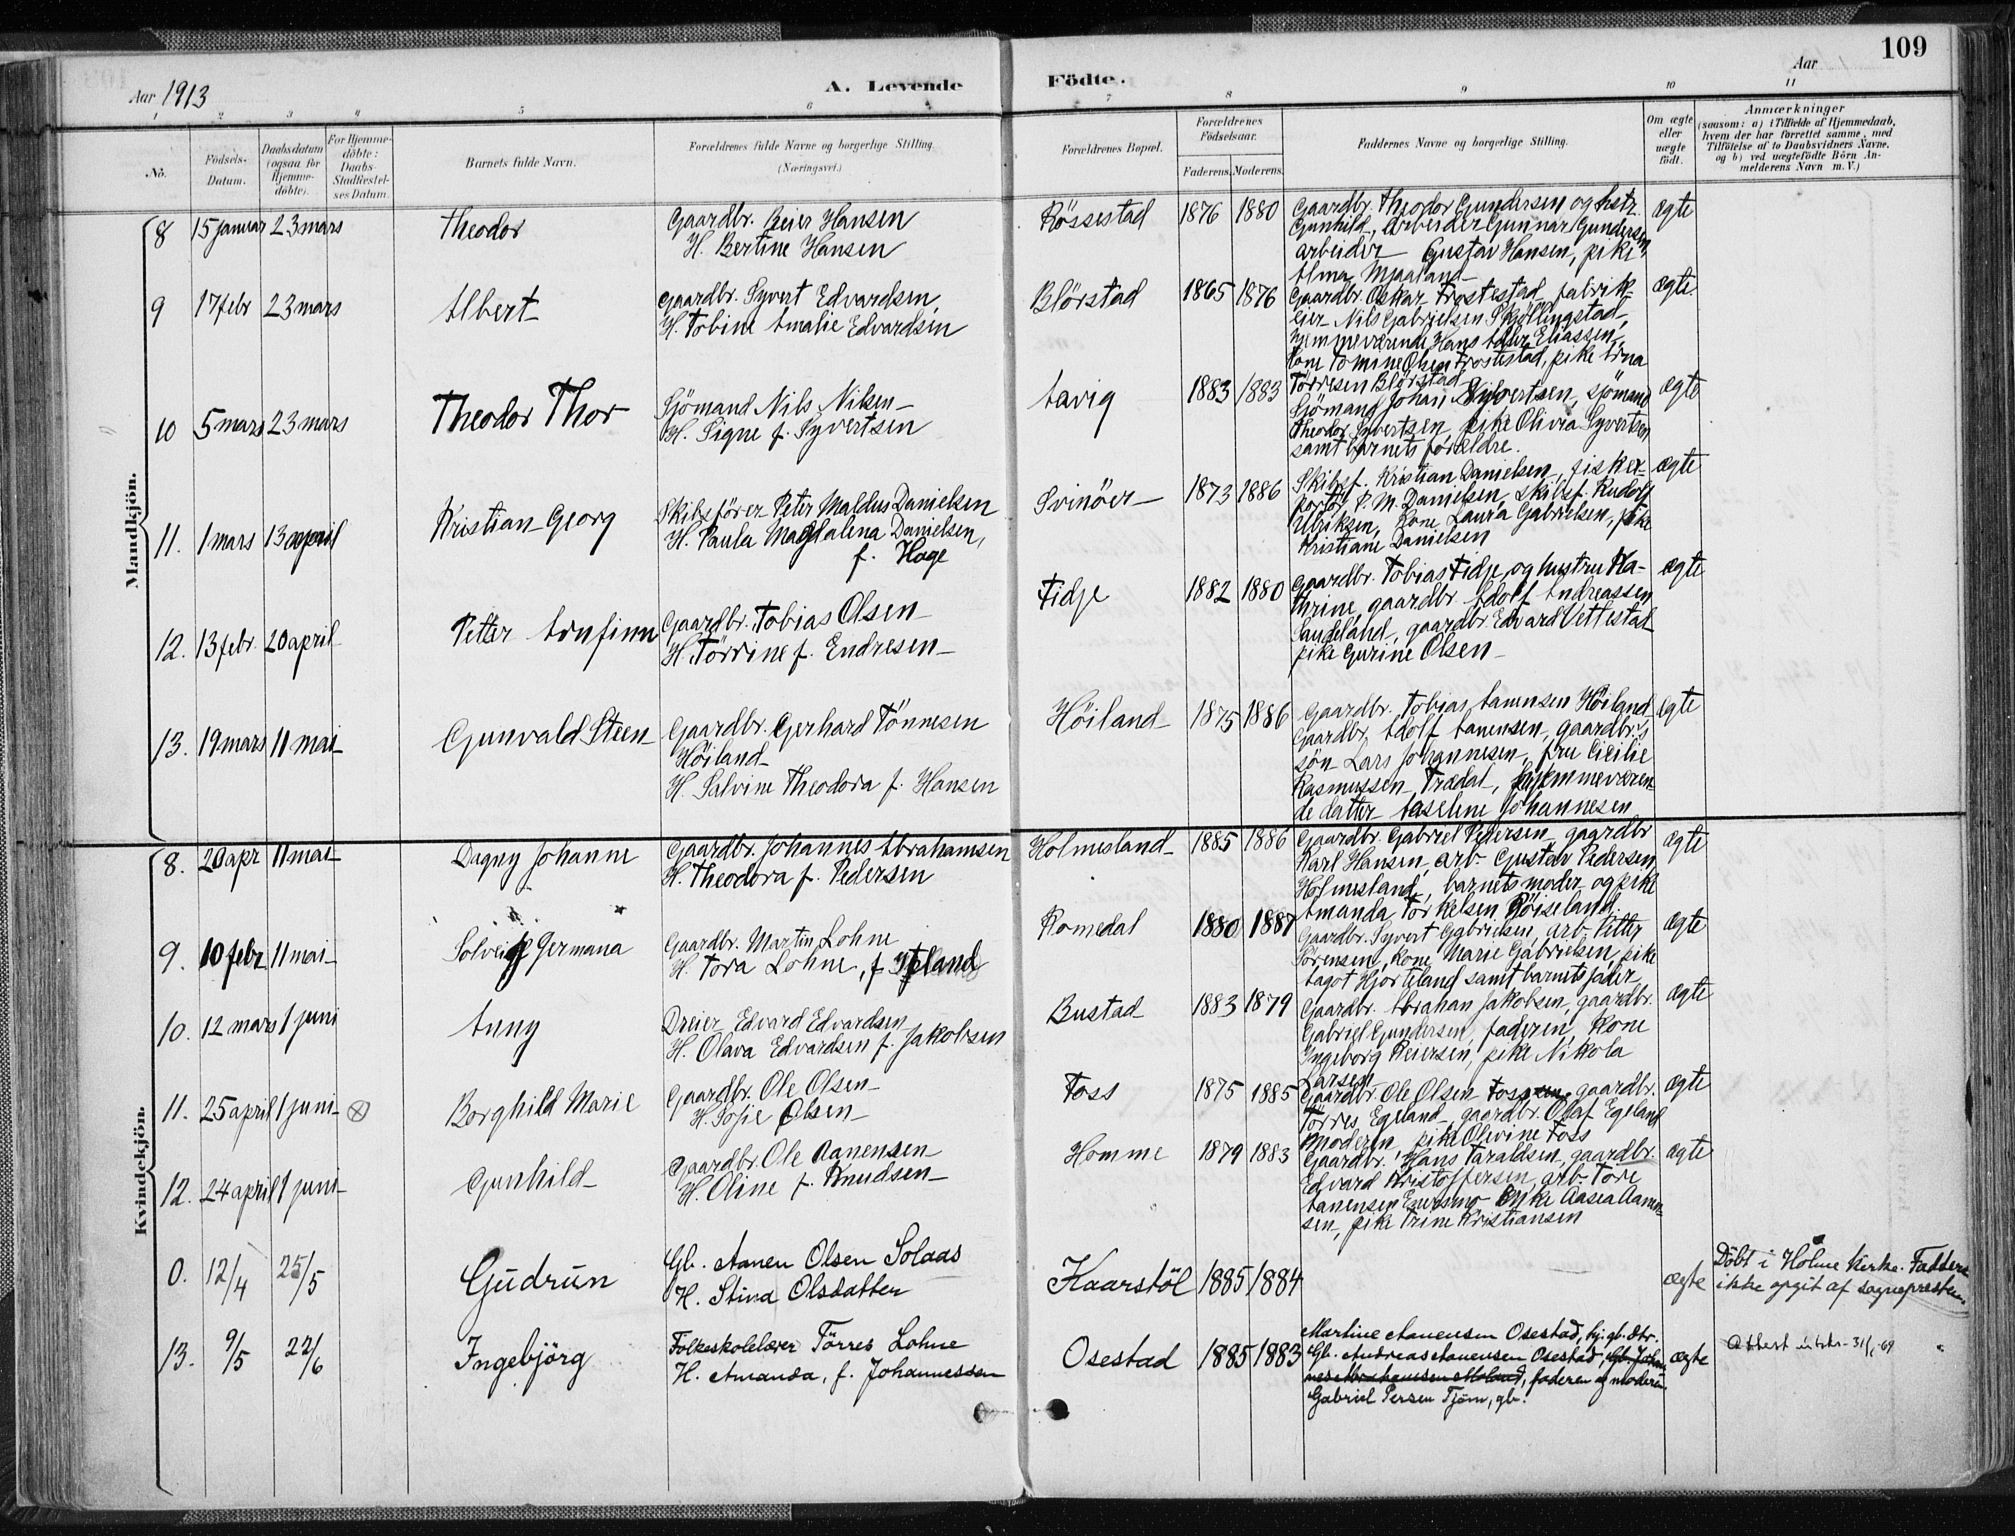 109
Aar 1913
A. Levende
Födte.
Aar
1 2 3 4 5 6 7 8 9 10 11
No.
Födsels-Datum.
Daabsdatum (ogsaa for Hjemmedöbte).
For Hjemmedöbte: Daabs-Stadfæstelses Datum.
Barnets fulde Navn.
Forældrenes fulde Navne og borgerlige Stilling.
(Næringsvei.)
Forældrenes Bopæl.
Forældrenes Födselsaar.
Faderens. Moderens.
Faddernes Navne og borgerlige Stilling.
Om ægte eller uægte födt.
Anmærkninger
(saasom: a) i Tilfælde af Hjemmedaab,
hvem der har forrettet samme, med
Tilföielse af to Daabsvidners Navne,
og b) ved uægtefödte Börn An-
melderens Navn m. V.)
Mandkjön.
8 15 januar 23 mars Theodor
Gaardbr. Reier Hansen
H. Bertine Hansen
Rössestad 1876 1880
Gaardbr. Theodor Gundersen og hstr.
Gunhild, arbeider Gunnar Gundersen
arbeider Gustav Hansen, pike
Alma Mjaaland
ægte
9 17 febr 23 mars Albert
Gaardbr. Syvert Edvardsen
H. Tobine Amalie Edvardsen
Blörstad 1865 1876
Gaardbr. Oskar Trostestad, fabrik-
eier Nils Gabrielsen Skjöllingstad,
hjemmeværende Hans Eliassen,
Kone Tomine Olsen Frostestad, pike Arna
Törresen Blörstad
ægte
10 5 mars 23 mars Theodor Thor
Sjömand Nils Nilsen
H. Signe f. Syvertsen
Aavig 1883 1883
Sjömand Johan Syvertsen, sjömand
Theodor Syvertsen, pike Olivia Syvertsen
samt barnets forældre.
ægte
11. 1 mars 13 april Kristian Georg
Skibsförer Peter Maldus Danielsen
H. Paula Magdalena Danielsen,
f. Hage
Svinöer 1873 1886
Skibsf. Kristian Danielsen, fisker
P. M. Danielsen, skibsf. Rudolf
Ulriksen, Kone Laura Gabrielsen, pike
Kristiane Danielsen
ægte
12. 13 febr. 20 april Petter Arnfinn
Gaardbr. Tobias Olsen
H. Törrine f. Endresen
Fidje 1882 1880
Gaardbr. Tobias Fidje og hustru Ka-
thrine, gaardbr. Adolf Andreassen
gaardbr. Edvard Vettestad
pike Gurine Olsen
ægte
13. 19 mars 11 mai Gunvald Steen
Gaardbr. Gerhard Tönnesen
Höiland
H. Salvine Theodora f. Hansen
Höiland 1875 1886
Gaardbr. Tobias Aanensen Höiland
Gaardbr. Adolf Aanensen, gaardbr's
sön Lars Johannesen, fru Cicilie
Rasmussen Trædal, hjemmeværen-
de datter Aaselene Johannesen
ægte
Kvindekjön.
8. 20 apr 11 mai Dagny Johanne
Gaardbr. Johannes Abrahamsen
H. Theodora f. Pedersen
Holmesland 1885 1886
Gaardbr. Gabriel Pedersen, gaardbr
Karl Hansen, arb. Gustav Pedersen
Holmesland, barnets moder og pike
Amanda Torkelsen Röiseland
ægte
9. 10 febr 11 mai Solveig Germana
Gaardbr. Martin Lohne
H. Tora Lohne, f.
Romedal 1880 1887
Gaardbr. Syvert Gabrielsen, arb. Petter
Sörensen, Kone Marie Gabrielsen, pike
Aagot Hjorteland samt barnets fader
ægte
10. 12 mars 1 juni Anny
Dreier Edvard Edvardsen
H. Olava Edvardsen f. Jakobsen
Bustad 1883 1879
Gaardbr. Abrahan Jakobsen, gaardbr.
Gabriel Gundersen, faderen, Kone
Ingeborg Reiersen, pike Nikola
Larsen
ægte
11. 25 april 1 juni Borghild Marie
Gaardbr. Ole Olsen
H. Sofie Olsen
Foss 1875 1885
Gaardbr. Ole Olsen Foss, gaardbr.
Törres Egeland, gaardbr. Olaf Egeland
Moderen, pike Olivine Foss
ægte
12. 24 april 1 juni Gunhild
Gaardbr. Ole Aanensen
H. Oline f. Knudsen
Homme 1879 1883
Gaardbr. Hans Taraldsen, gaardbr.
Edvard Kristoffersen, arb. Tore
Aanensen, pike Aasea Aanen-
sen, pike Trine Kristiansen
ægte
0. 12/4 25/5 Gudrun
Gb. Aanen Olsen Solaas
H. Stina Olsdatter
Kaarstöl 1885 1884
ægte
Döbt i Holme Kirke. Faddere
ikke opgit af sognepresten.
13. 9/5 22/6 Ingebjörg
Folkeskolelærer Törres Lohne
H. Amanda, f. Johannessen
Osestad 1885 1883
Martine Aanensen Osestad, hj. gb. dtr.
Gb. Andreas Aanensen Osestad, Gb. Johan-
nes Abrahamsen, faderen og moderen.
Gabriel Persen Tjöm, gb.
ægte
Attest utskr. 31/1-69